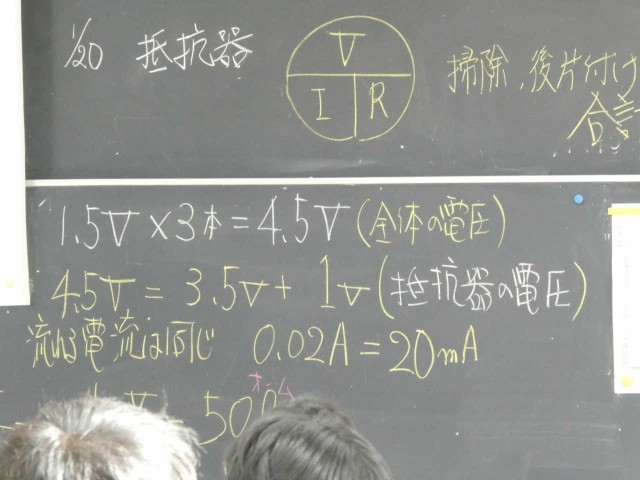 1/20 抵抗器
V
I R
掃除、後片付け
合計
1.5V×3本=4.5V(全体の電圧)
4.5V=3.5V+1V(抵抗器の電圧)
流れる電流は同じ 0.02A=20mA
オーム
50Ω